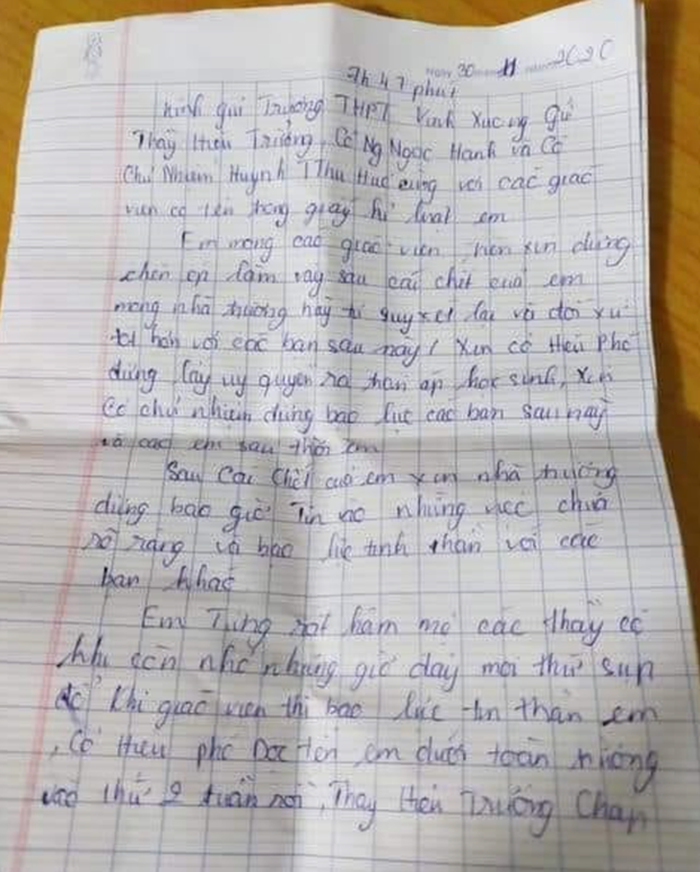 Ngày 30 tháng 11 năm 2020
7h 47 phút
Kính gửi Trường THPT Vĩnh Xương Gửi
Thầy Hiệu Trưởng, Cô Ng Ngọc Hạnh và Cô
Chủ Nhiệm Huỳnh T Thu Huệ cùng với các giáo
viên có tên trong giấy kỉ luật em
Em mong các giáo viên, nên xin đừng
chèn ép lắm vậy sau cái chết của em
mong nhà trường hãy suy xét lại và đối xử
tốt hơn với các bạn sau này! Xin cô Hiệu Phó
đừng lấy uy quyền ra chèn ép học sinh, xin
cô chủ nhiệm đừng bạo lực các bạn sau này
và các em sau thời em
Sau cái chết của em xin nhà trường
đừng bao giờ tin vào những việc chưa
rõ ràng và bạo lực tinh thần với các
bạn khác
Em Từng rất hâm mộ các thầy cô
khi còn nhỏ nhưng giờ đây mọi thứ sụp
đổ khi giáo viên thì bạo lực tin thần em
, Cô Hiệu phó Đọc tên em dưới toàn trường
vào thứ 2 tuần rồi, Thầy Hiệu Trưởng Chấp